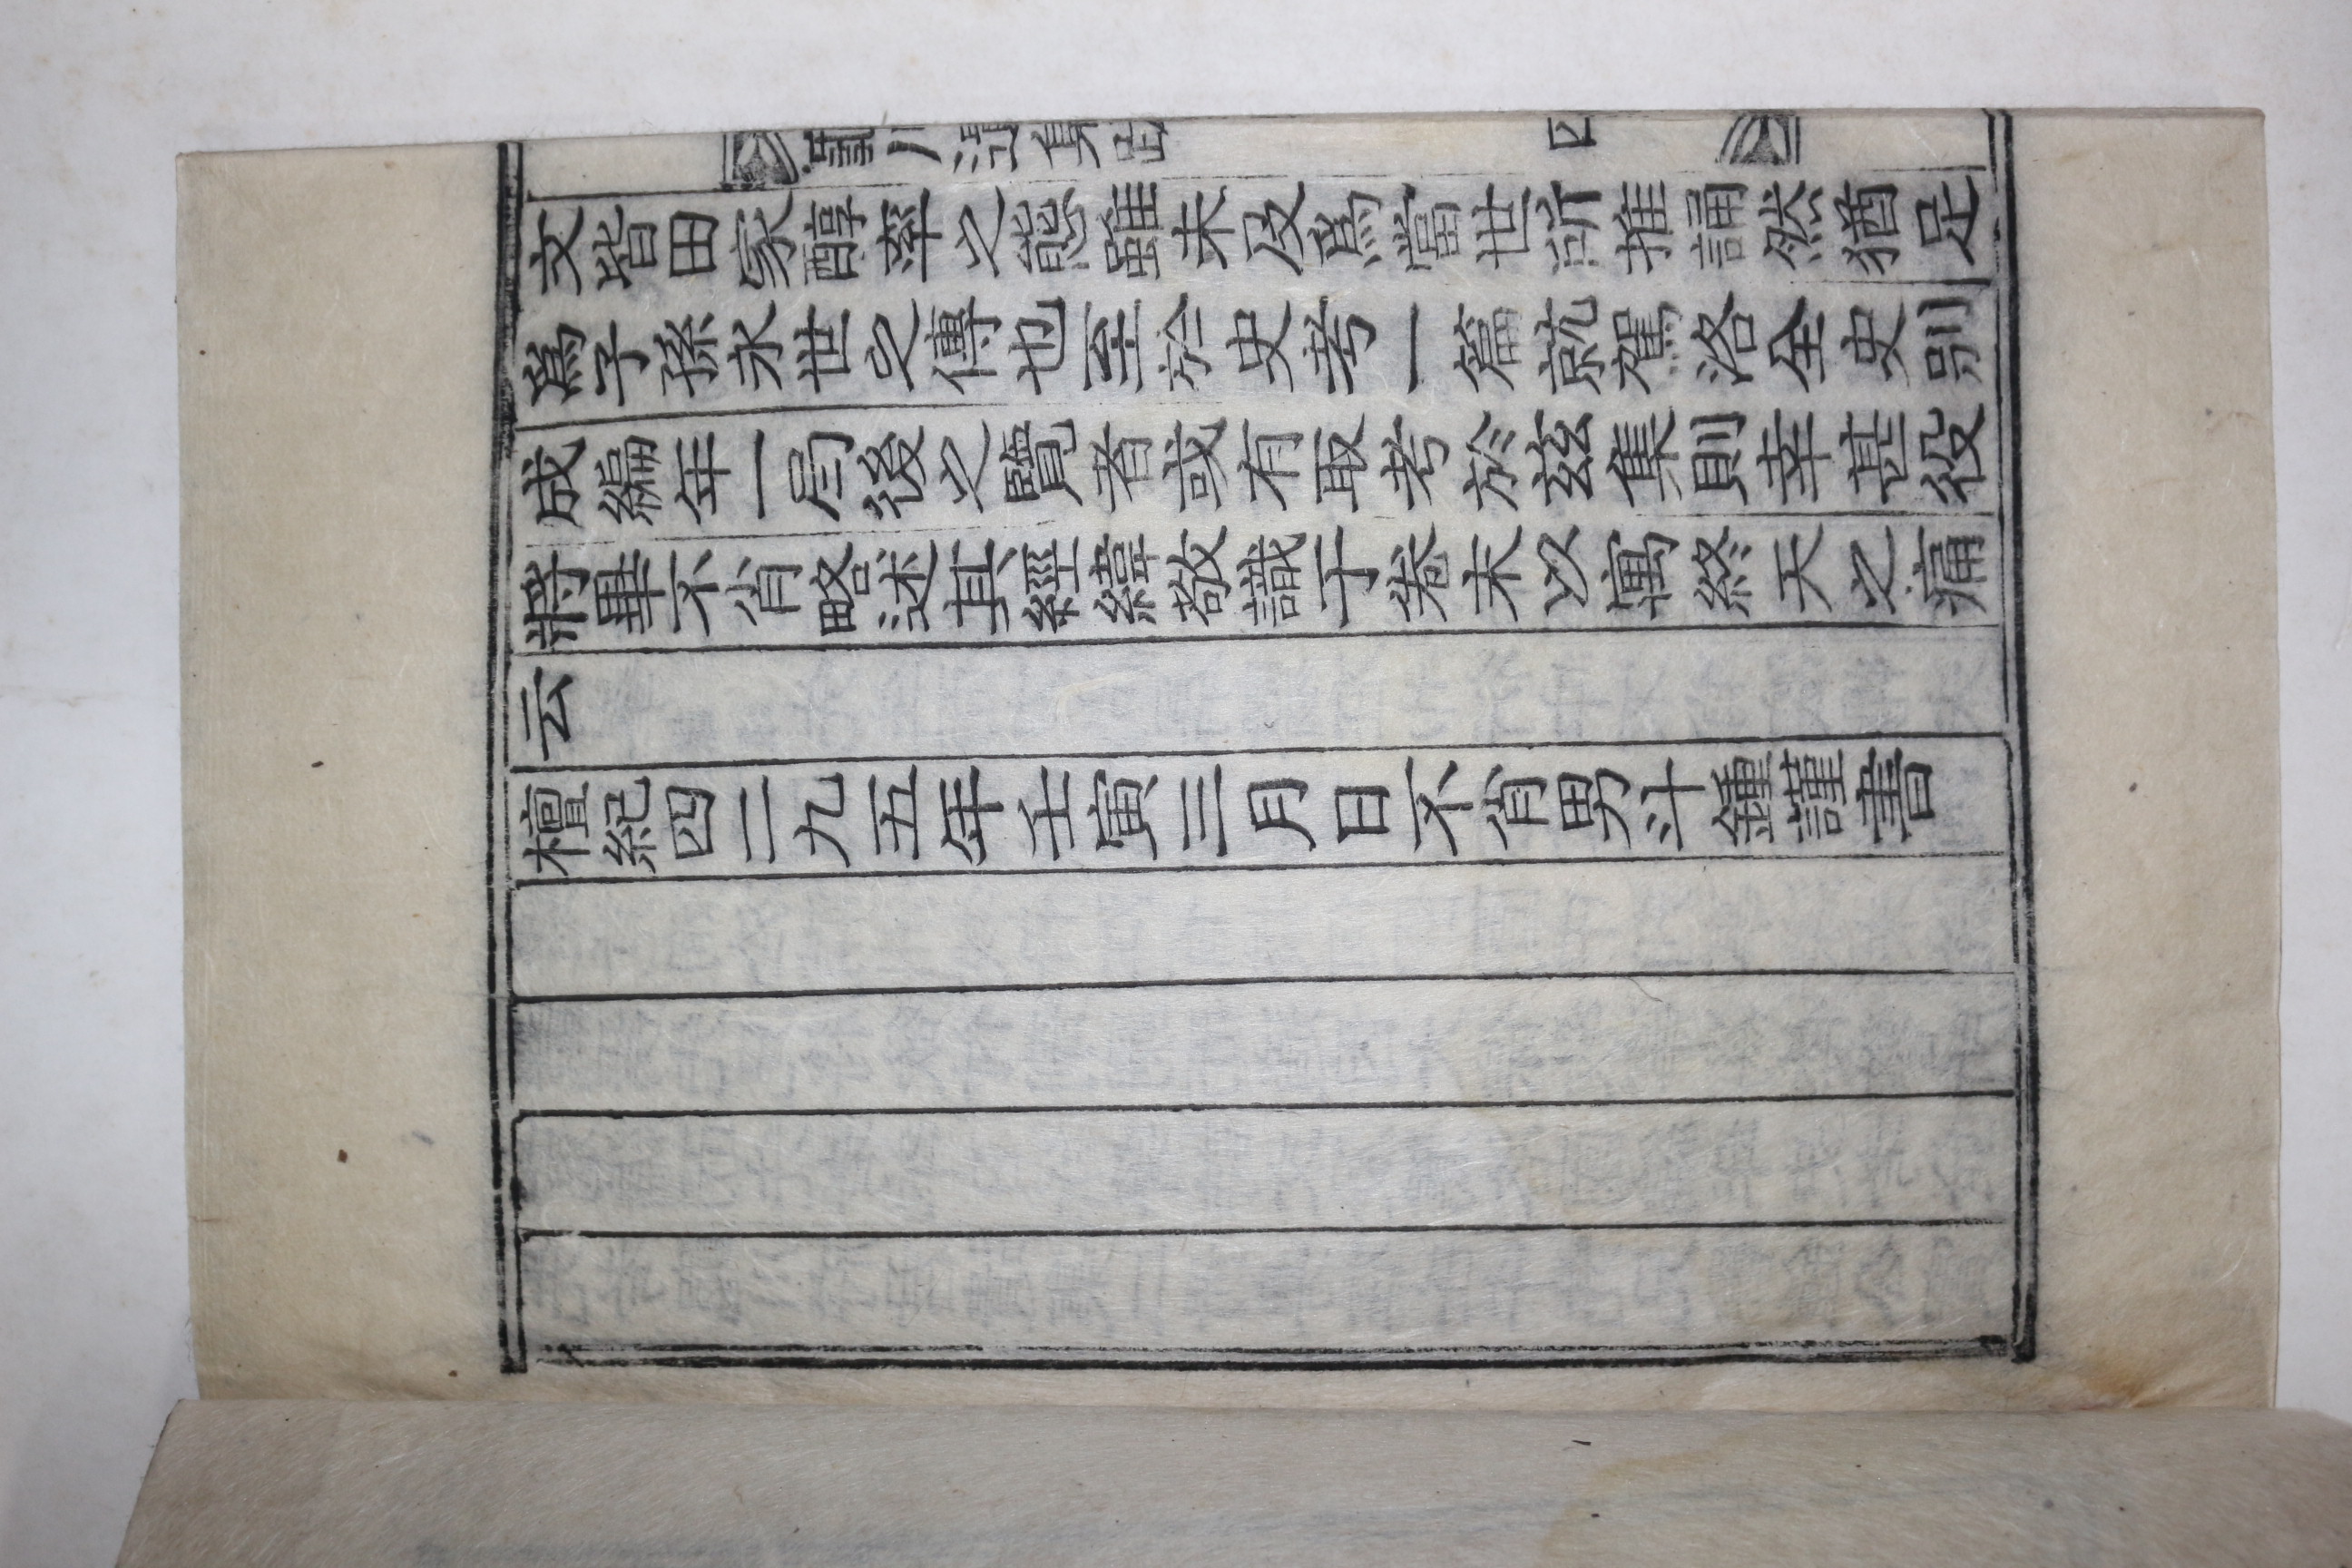 川遺集跋 四
文皆田家醇率之態雖未及爲當世所推誦然猶足
爲子孫永世之傳也至於史考一篇就駕洛全史別
成編年一局後之覽者或有取考於玆集則幸甚役
將畢不肖略述其經緯敬識于卷末以寓終天之痛
云
檀紀四二九五年壬寅三月日不肖男斗鍾謹書